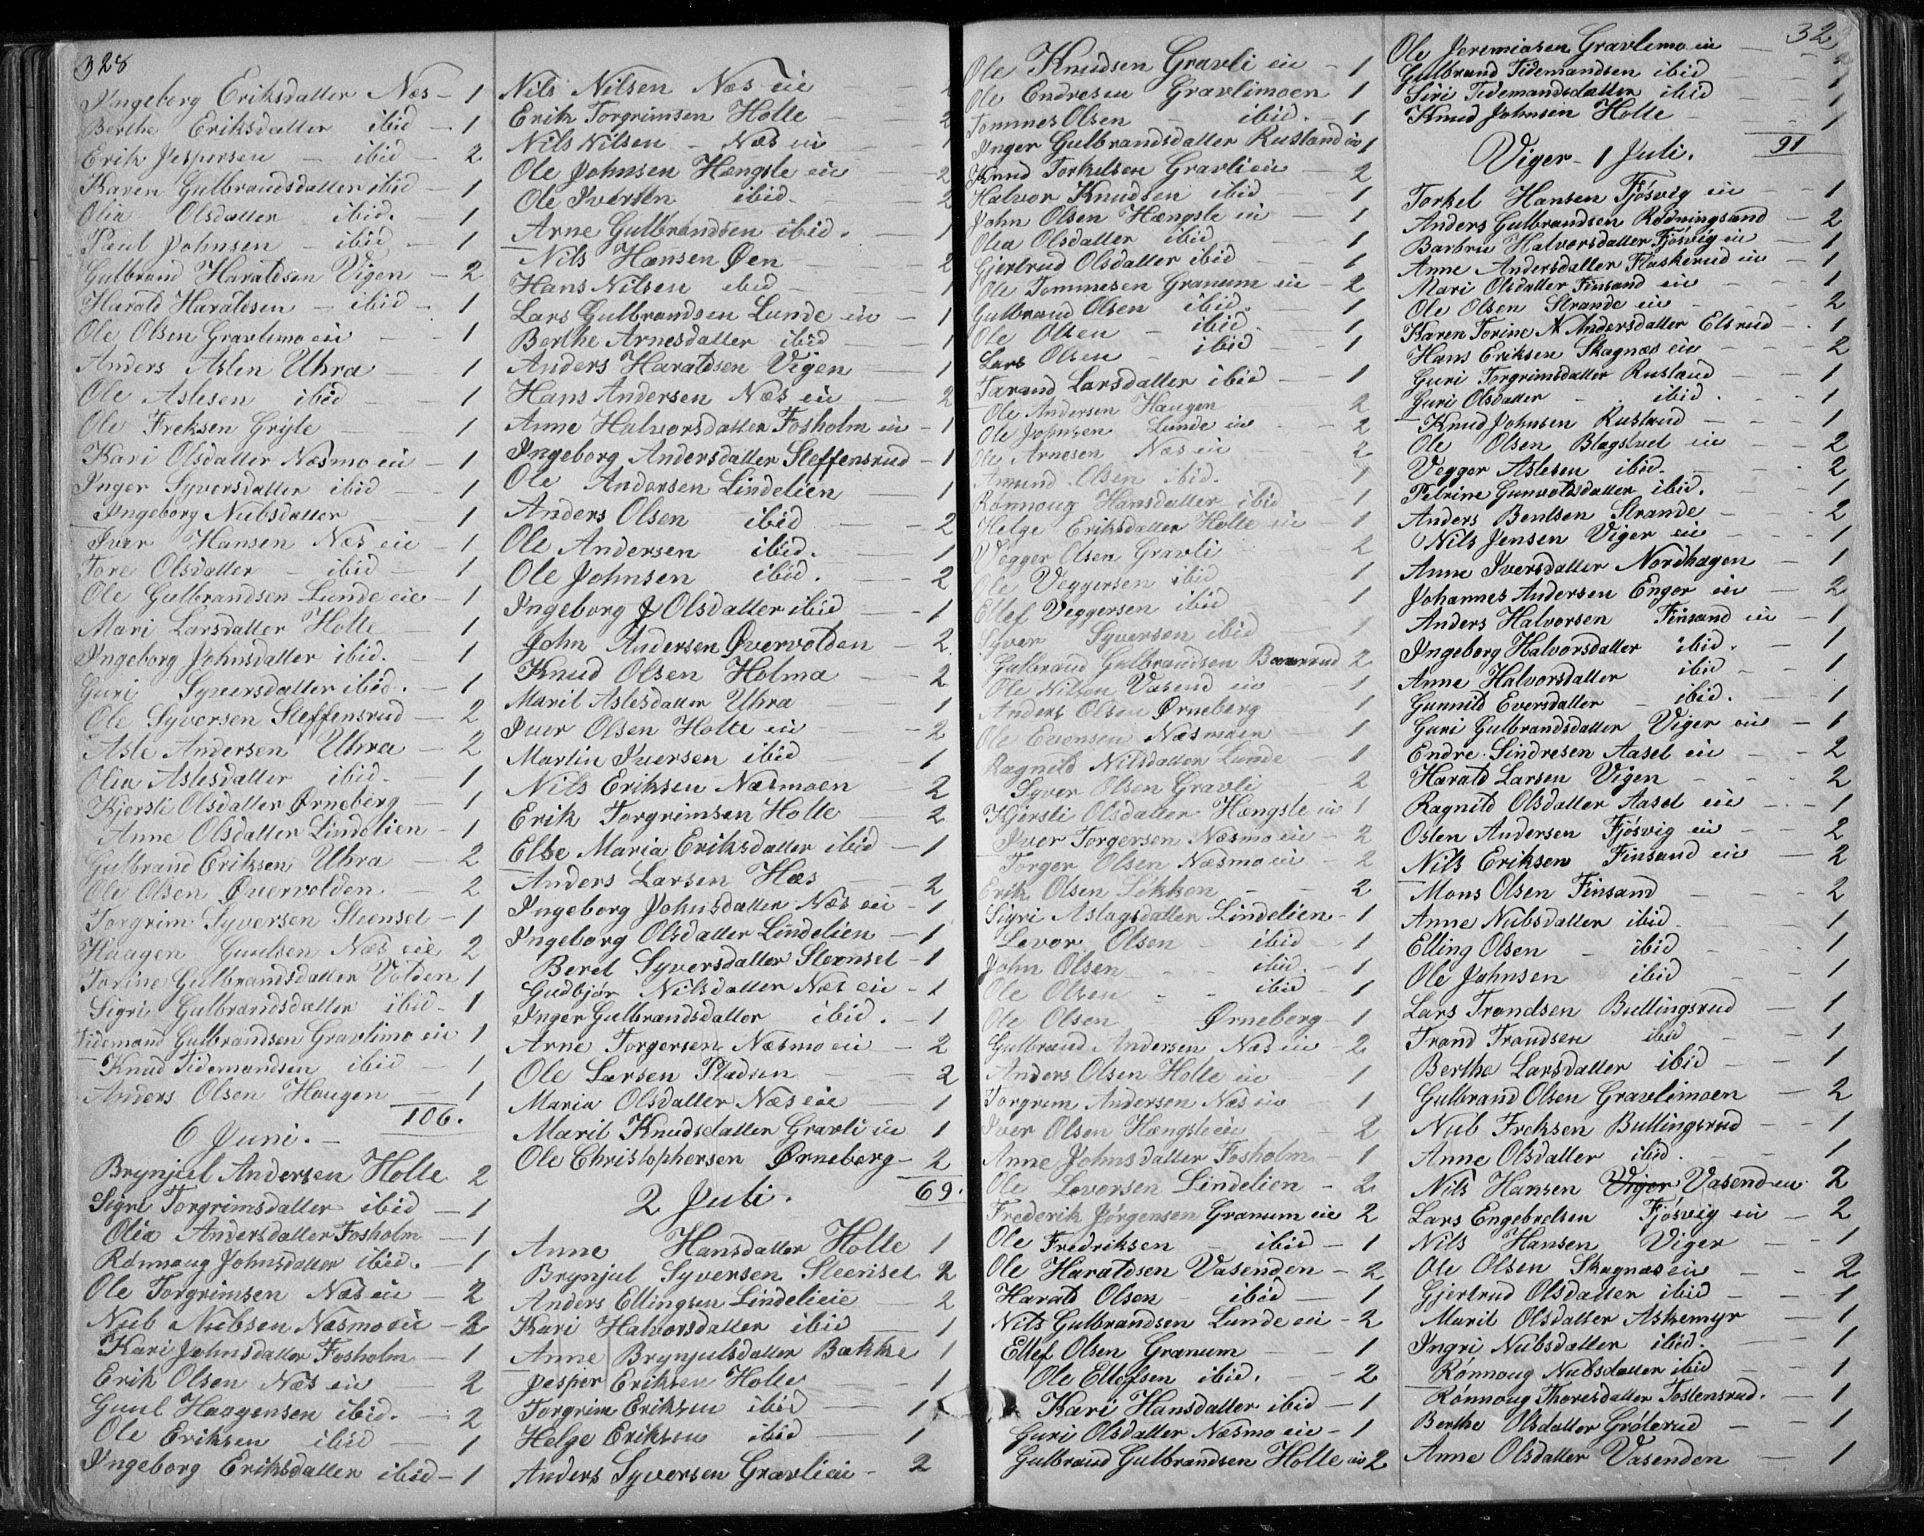 328
Ingeborg Eriksdatter Næs - 1
Berthe Eriksdatter ibid - 1
Erik Jespersen - ibid - 2
Karen Gulbrandsdatter ibid - 1
Olia Olsdatter ibid. - 1
Paul Johnsen - ibid - 1
Gulbrand Haraldsen Vigen - 2
Harald Haraldsen - ibid - 1
Ole Olsen Gravlimo eie - 1
Anders Aslen Uhra - 1
Ole Aslesen ibid - 1
Ole Freksen Gryte - 1
Kari Olsdatter Næsmo eie - 1
Inger Syversdatter ibid - 1
Ingeborg Nubsdatter - 1
Iver Hansen Næs eie - 1
Tore Olsdatter - ibid - 1
Ole Gulbrandsen Lunde eie - 1
Mari Larsdatter Holte - 1
Ingeborg Johnsdatter ibid. - 1
Guri Syversdatter ibid. - 1
Ole Syversen Steffensrud - 2
Asle Andersen Uhra - 2
Olia Aslesdatter ibid. - 1
Kjersti Olsdatter Ørneberg - 1
Anne Olsdatter Lindelien - 1
Gulbrand Eriksen Uhra - 2
Ole Olsen Øvervolden - 2
Torgrim Syversen Steenset - 1
Haagen Guulsen Næs eie 2
Torine Gulbrandsdatter Volden 1
Sigri Gulbrandsdatter ibid - 1
Tidemand Gulbrandsen Gravlimo eie 1
Knud Tidemandsen ibid - 1
Anders Olsen Haugen - 1
106.
6 Juni. -
Brynjul Andersen Holte 2
Sigri Torgrimsdatter ibid - 1
Olia Andersdatter Fosholm - 1
Rønnoug Johnsdatter ibid. - 1
Ole Torgrimsen Næs eie - 2
Nub Nubsen Næsmo eie - 2
Kari Johnsdatter Fosholm - 1
Erik Olsen Næs eie 2
Guul Haagensen ibid. - 2
Ole Eriksen ibid - 1
Ingeborg Eriksdatter ibid - 1
Nils Nilsen Næs eie - 2
Erik Torgrimsen Holte - 2
Nils Nilsen - Næs eie - 1
Ole Johnsen Hængsle eie - 2
Ole Iversen ibid. - 2
Arne Gulbrandsen ibid. - 1
Nils Hansen Øen - 2
Hans Nilsen ibid - 1
Lars Gulbrandsen Lunde eie - 1
Berthe Arnesdatter ibid - 1
Anders Haraldsen Vigen - 1
Hans Andersen Næs eie - 2
Anne Halvorsdatter Fosholm eie - 1
Ingeborg Andersdatter Steffensrud - 1
Ole Andersen Lindelien 1
Anders Olsen ibid - 2
Ole Andersen ibid. - 1
Ole Johnsen ibid. - 2
Ingeborg Olsdatter ibid - 1
John Andersen Øvervolden - 2
Knud Olsen Holma - 2
Marit Aslesdatter Uhra - 1
Iver Olsen Holte eie - 2
Martin Iversen ibid - 1
Nils Eriksen Næsmoen - 2
Erik Torgrimsen Holte - 2
Else Maria Eriksdatter ibid - 1
Anders Larsen Næs - 2
Ingeborg Johnsdatter Næs eie - 1
Ingeborg Olsdatter Lindelien - 1
Beret Syversdatter Steenset - 1
Gudbjør Nilsdatter Næs eie - 1
Inger Gulbrandsdatter ibid. - 1
Arne Torgersen Næsmo eie - 2
Ole Larsen Pladsen 2
Maria Olsdatter Næs eie - 1
Marit Knudsdatter Gravli eie 1
Ole Christophersen Ørneberg - 2
69.
2 Juli.
Anne Hansdatter Holte 1
Brynjul Syversen Steenset 2
Anders Ellingsen Lindelieie 2
Kari Halvorsdatter ibid - 1
Anne Brynjulsdatter Bakke 1
Jesper Eriksen Holte - 1
Torgrim Eriksen ibid - 1
Helge Eriksen ibid 1
Anders Syversen Gravlieie - 2
Ole Knudsen Gravli eie - 1
Ole Endresen Gravlimoen 1
Tommes Olsen ibid. - 1
Inger Gulbrandsdatter Rusland eie 1
Knud Torkelsen Gravli eie - 2
Halvor Knudsen ibid - 1
John Olsen Hængsle eie - 1
Olia Olsdatter ibid - 1
Gjertrud Olsdatter ibid - 1
Ole Tommesen Granum eie - 2
Gulbrand Olsen ibid. - 1
Ole Olsen - ibid - 1
Lars Olsen - ibid - 1
Tarand Larsdatter ibid - 1
Ole Andersen Haugen 2
Ole Johnsen Lunde eie - 2
Ole Arnesen Næs eie 2
Amund Olsen ibid. 1
Rønnoug Hansdatter ibid - 1
Helge Eriksdatter Holte eie 1
Vegger Olsen Gravli 2
Ole Veggersen ibid 1
Ellef Veggersen ibid - 1
Syver Syversen ibid - 1
Gulbrand Gulbrandsen Baarrud 2
Ole Nilsen Vasend eie 1
Anders Olsen Ørneberg 1
Ole Evensen Næsmoen - 1
Ragnild Nilsdatter Lunde 1
Syver Olsen Gravli 2
Kjersti Olsdatter Hængsle eie 1
Iver Torgersen Næsmo eie - 2
Torger Olsen Næsmo eie - 2
Erik Olsen Løkken - 2
Sigri Aslagsdatter Lindelien - 1
Levor Olsen ibid - 1
John Olsen - ibid. - 1
Ole Olsen - ibid - 1
Ole Olsen Ørneberg - 1
Gulbrand Andersen Næs eie - 2
Anders Olsen Holte eie 1
Torgrim Andersen Næs eie - 1
Iver Olsen Hængsle eie 2
Anne Johnsdatter Fosholm - 1
Ole Levorsen Lindelien - 2
Frederik Jørgensen Granum eie 2
Ole Fredriksen - ibid - 1
Ole Haraldsen Vasenden - 2
Harald Olsen - ibid - 1
Nils Gulbrandsen Lunde eie - 2
Ellef Olsen Granum - 1
Ole Ellefsen ibid. - 2
Kari Hansdatter ibid - 1
Guri Olsdatter Næsmo eie - 1
Gulbrand Gulbrandsen Holte eie 2
32
Ole Jeremiasen Gravlimo eie - 2
Gulbrand Tidemandsen ibid - 1
Siri Tidemandsdatter ibid - 1
Knud Johnsen Holte - 1
91
Viger - 1 Juli.
Torkel Hansen Fjøsvig eie - 1
Anders Gulbrandsen Rødningsand - 2
Barbru Halvorsdatter Fjøsvig eie - 1
Anne Andersdatter Flaskerud eie - 1
Mari Olsdatter Finsand eie - 1
Ole Olsen Strande eie - 2
Karen Torine N Andersdatter Elsrud - 1
Hans Eriksen Skagnæs eie - 2
Guri Torgrimsdatter Rusland - 1
Guri Olsdatter - ibid. - 1
Knud Johnsen Rusland - 1
Ole Olsen Blagstvet eie - 2
Vegger Aslesen ibid. - 2
Petrine Gunvoldsdatter ibid. - 1
Anders Bentsen Strande - 2
Nils Jensen Viger eie - 1
Anne Iversdatter Nordhagen - 1
Johannes Andersen Enger eie - 2
Anders Halvorsen Finsand eie - 1
Ingeborg Halvorsdatter ibid. - 1
Anne Halvorsdatter ibid - 1
Gunnild Eversdatter - ibid. - 1
Guri Gulbrandsdatter Viger eie - 1
Endre Sindresen Aasel eie - 2
Harald Larsen Vigen - 2
Ragnild Olsdatter Aasel eie - 1
Osten Andersen Fjøsvig eie - 2
Nils Eriksen Finsand eie - 2
Mons Olsen Finsand - 2
Anne Nubsdatter ibid - 1
Elling Olsen - ibid - 1
Ole Johnsen ibid - 1
Lars Trondsen Bullingsrud - 1
Trond Trondsen ibid - 1
Berthe Larsdatter ibid - 1
Gulbrand Olsen Gravlimoen - 2
Nub Freksen Bullingsrud - 1
Anne Olsdatter ibid. - 1
Nils Hansen Viger Vasend eie 2
Lars Engebretsen Fjøsvig eie - 2
Nils Hansen Viger - 1
Ole Olsen Skagnæs eie - 2
Gjertrud Olsdatter ibid - 1
Marit Olsdatter Askemyr - 1
Ingri Nubsdatter ibid. - 1
Rønnoug Nubsdatter ibid - 1
Rønnoug Thoresdatter Tostensrud. - 1
Berthe Olsdatter Grøterud - 1
Anne Olsdatter Vasenden - 1